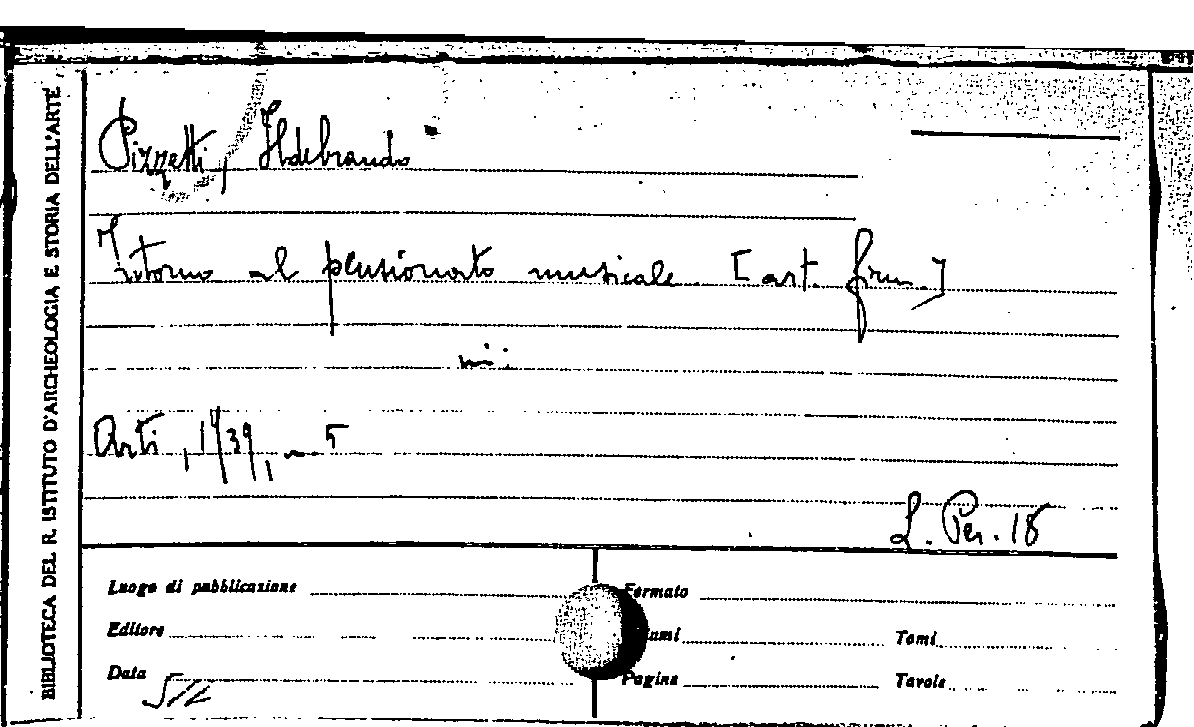 BIBLIOTECA DEL R. ISTITUTO D'ARCHEOLOGIA E STORIA DELL'ARTE
Pizzetti, Ildebrando
Intorno al pensionato musicale. [art. firm.]
Arti, 1939, n. 5
L. Per. 18
Luogo di pubblicazione
Formato
Editore
Tomi
Data
Pagine
Tavole